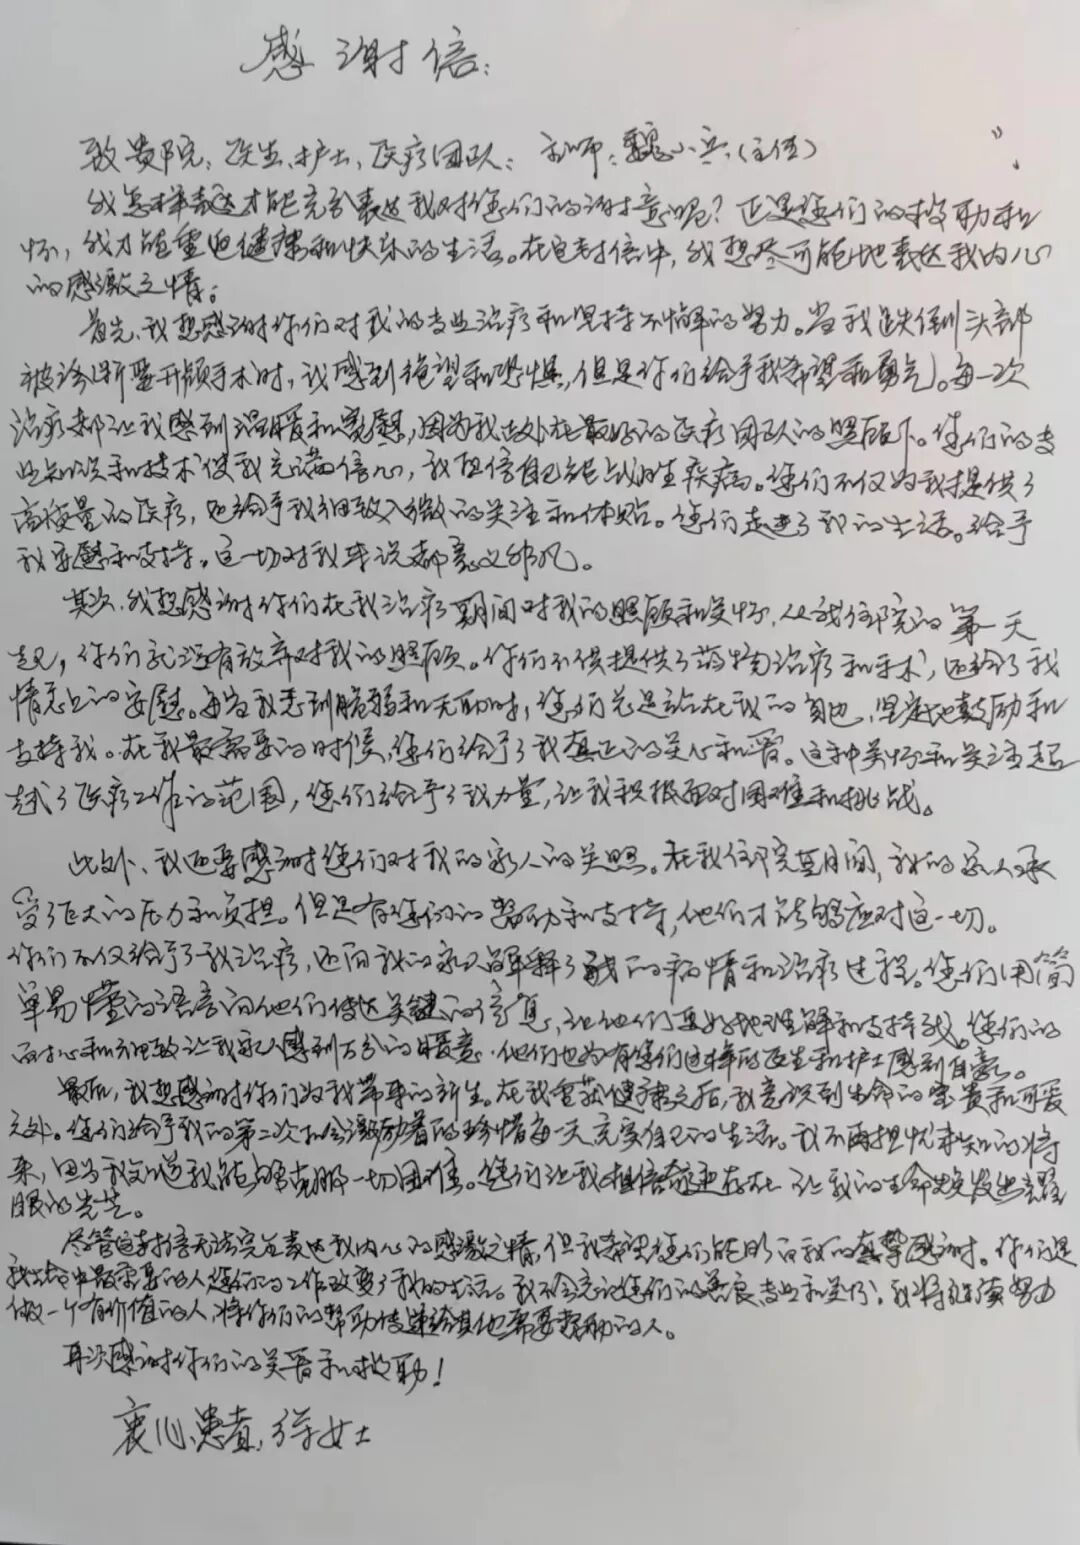 感谢信：
致贵院，医生、护士，医疗团队： 魏小兵（主任）
我怎样表达才能充分表达我对您们的谢意呢？正是您们的救助和
怀，我才能重返健康和快乐的生活。在这封信中，我想尽可能地表达我内心
的感激之情；
首先，我想感谢你们对我的专业治疗和坚持不懈的努力。当我跌倒头部
被诊断要开颅手术时，我感到绝望和恐惧，但是你们给予我希望和勇气。每一次
治疗都让我感到温暖和宽慰，因为我知处在最好的医疗团队的照顾下。您们的专
业知识和技术使我充满信心，我相信自己能战胜疾病。您们不仅为我提供了
高质量的医疗，也给予我细致入微的关注和体贴。您们走进了我的生活。给予
我安慰和支持。这一切对我来说都意义非凡。
其次，我想感谢你们在我治疗期间对我的照顾和关怀，从我住院的第一天
起，你们就没有放弃对我的照顾。你们不仅提供了药物治疗和手术，还给了我
情意上的安慰。每当我感到脆弱和无助时，您们总是站在我的身边，坚定地鼓励和
支持我。在我最需要的时候，您们给予了我真正的关心和爱。这种关怀和关注超
越了医疗工作的范围，您们给予了我力量，让我积极面对困难和挑战。
此外、我还要感谢您们对我的家人的关照。在我住院期间，我的家人承
受了巨大的压力和负担。但是有您们的帮助和支持，他们才能够应对这一切。
你们不仅给予了我治疗，还向我的家人解释了我的病情和治疗过程。您们用简
单易懂的语言向他们传达关键的信息，让他们更好地理解和支持我。您们的
耐心和细致让我家人感到万分的暖意，他们也为有您们这样的医生和护士感到自豪。
最后，我想感谢你们为我带来的新生。在我重获健康之后，我意识到生命的宝贵和可爱
之处。您们给予我的第二次机会激励着我珍惜每一天充实自己的生活。我不再担忧未知的将
来，因为我知道我能够克服一切困难。您们让我相信奇迹存在 让我的生命焕发出耀
眼的光芒。
尽管这封信无法完全表达我内心的感激之情，但我希望您们能明白我的真挚感谢。你们是
我生命中最重要的人您们的工作改变了我的生活。我不会忘记您们的善良专业和关怀，我将继续努力
做一个有价值的人，将你们的帮助传递给其他需要帮助的人。
再次感谢你们的关爱和救助！
衷心、患者，徐女士